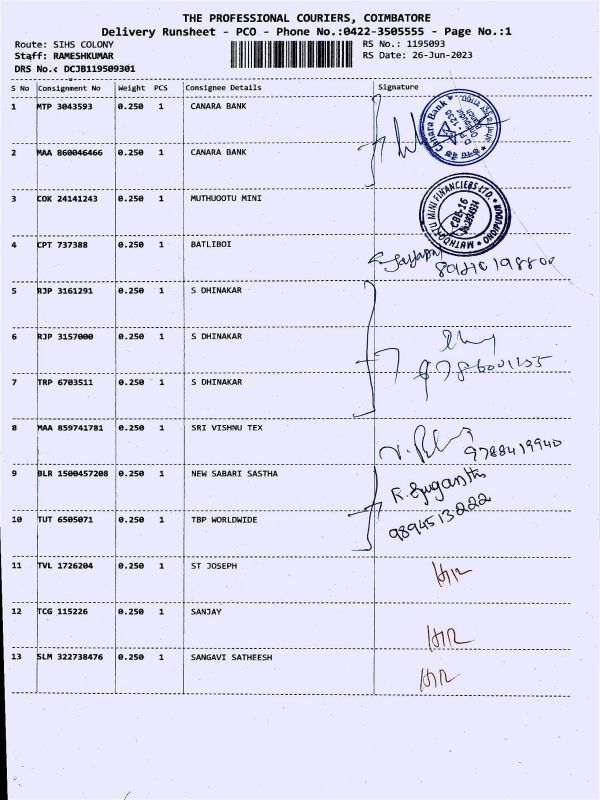 THE PROFESSIONAL COURIERS, COIMBATORE
Delivery Runsheet - PCO - Phone No.:0422-3505555 - Page No.:1
Route: SIHS COLONY
RS No.: 1195093
Staff: RAMESHKUMAR
RS Date: 26-Jun-2023
DRS No.: DCJB119509301
S No Consignment No Weight PCS Consignee Details Signature
1 MTP 3043593 0.250 1 CANARA BANK
2 MAA 860046466 0.250 1 CANARA BANK
3 COK 24141243 0.250 1 MUTHUOOTU MINI
4 CPT 737388 0.250 1 BATLIBOI
5 RJP 3161291 0.250 1 S DHINAKAR
6 RJP 3157000 0.250 1 S DHINAKAR
7 TRP 6703511 0.250 1 S DHINAKAR
8 MAA 859741781 0.250 1 SRI VISHNU TEX
9788419940
9 BLR 1500457208 0.250 1 NEW SABARI SASTHA
R. Suganthi
10 TUT 6505071 0.250 1 TBP WORLDWIDE
9894513222
11 TVL 1726204 0.250 1 ST JOSEPH
H/R
12 TCG 115226 0.250 1 SANJAY
H/R
13 SLM 322738476 0.250 1 SANGAVI SATHEESH
H/R